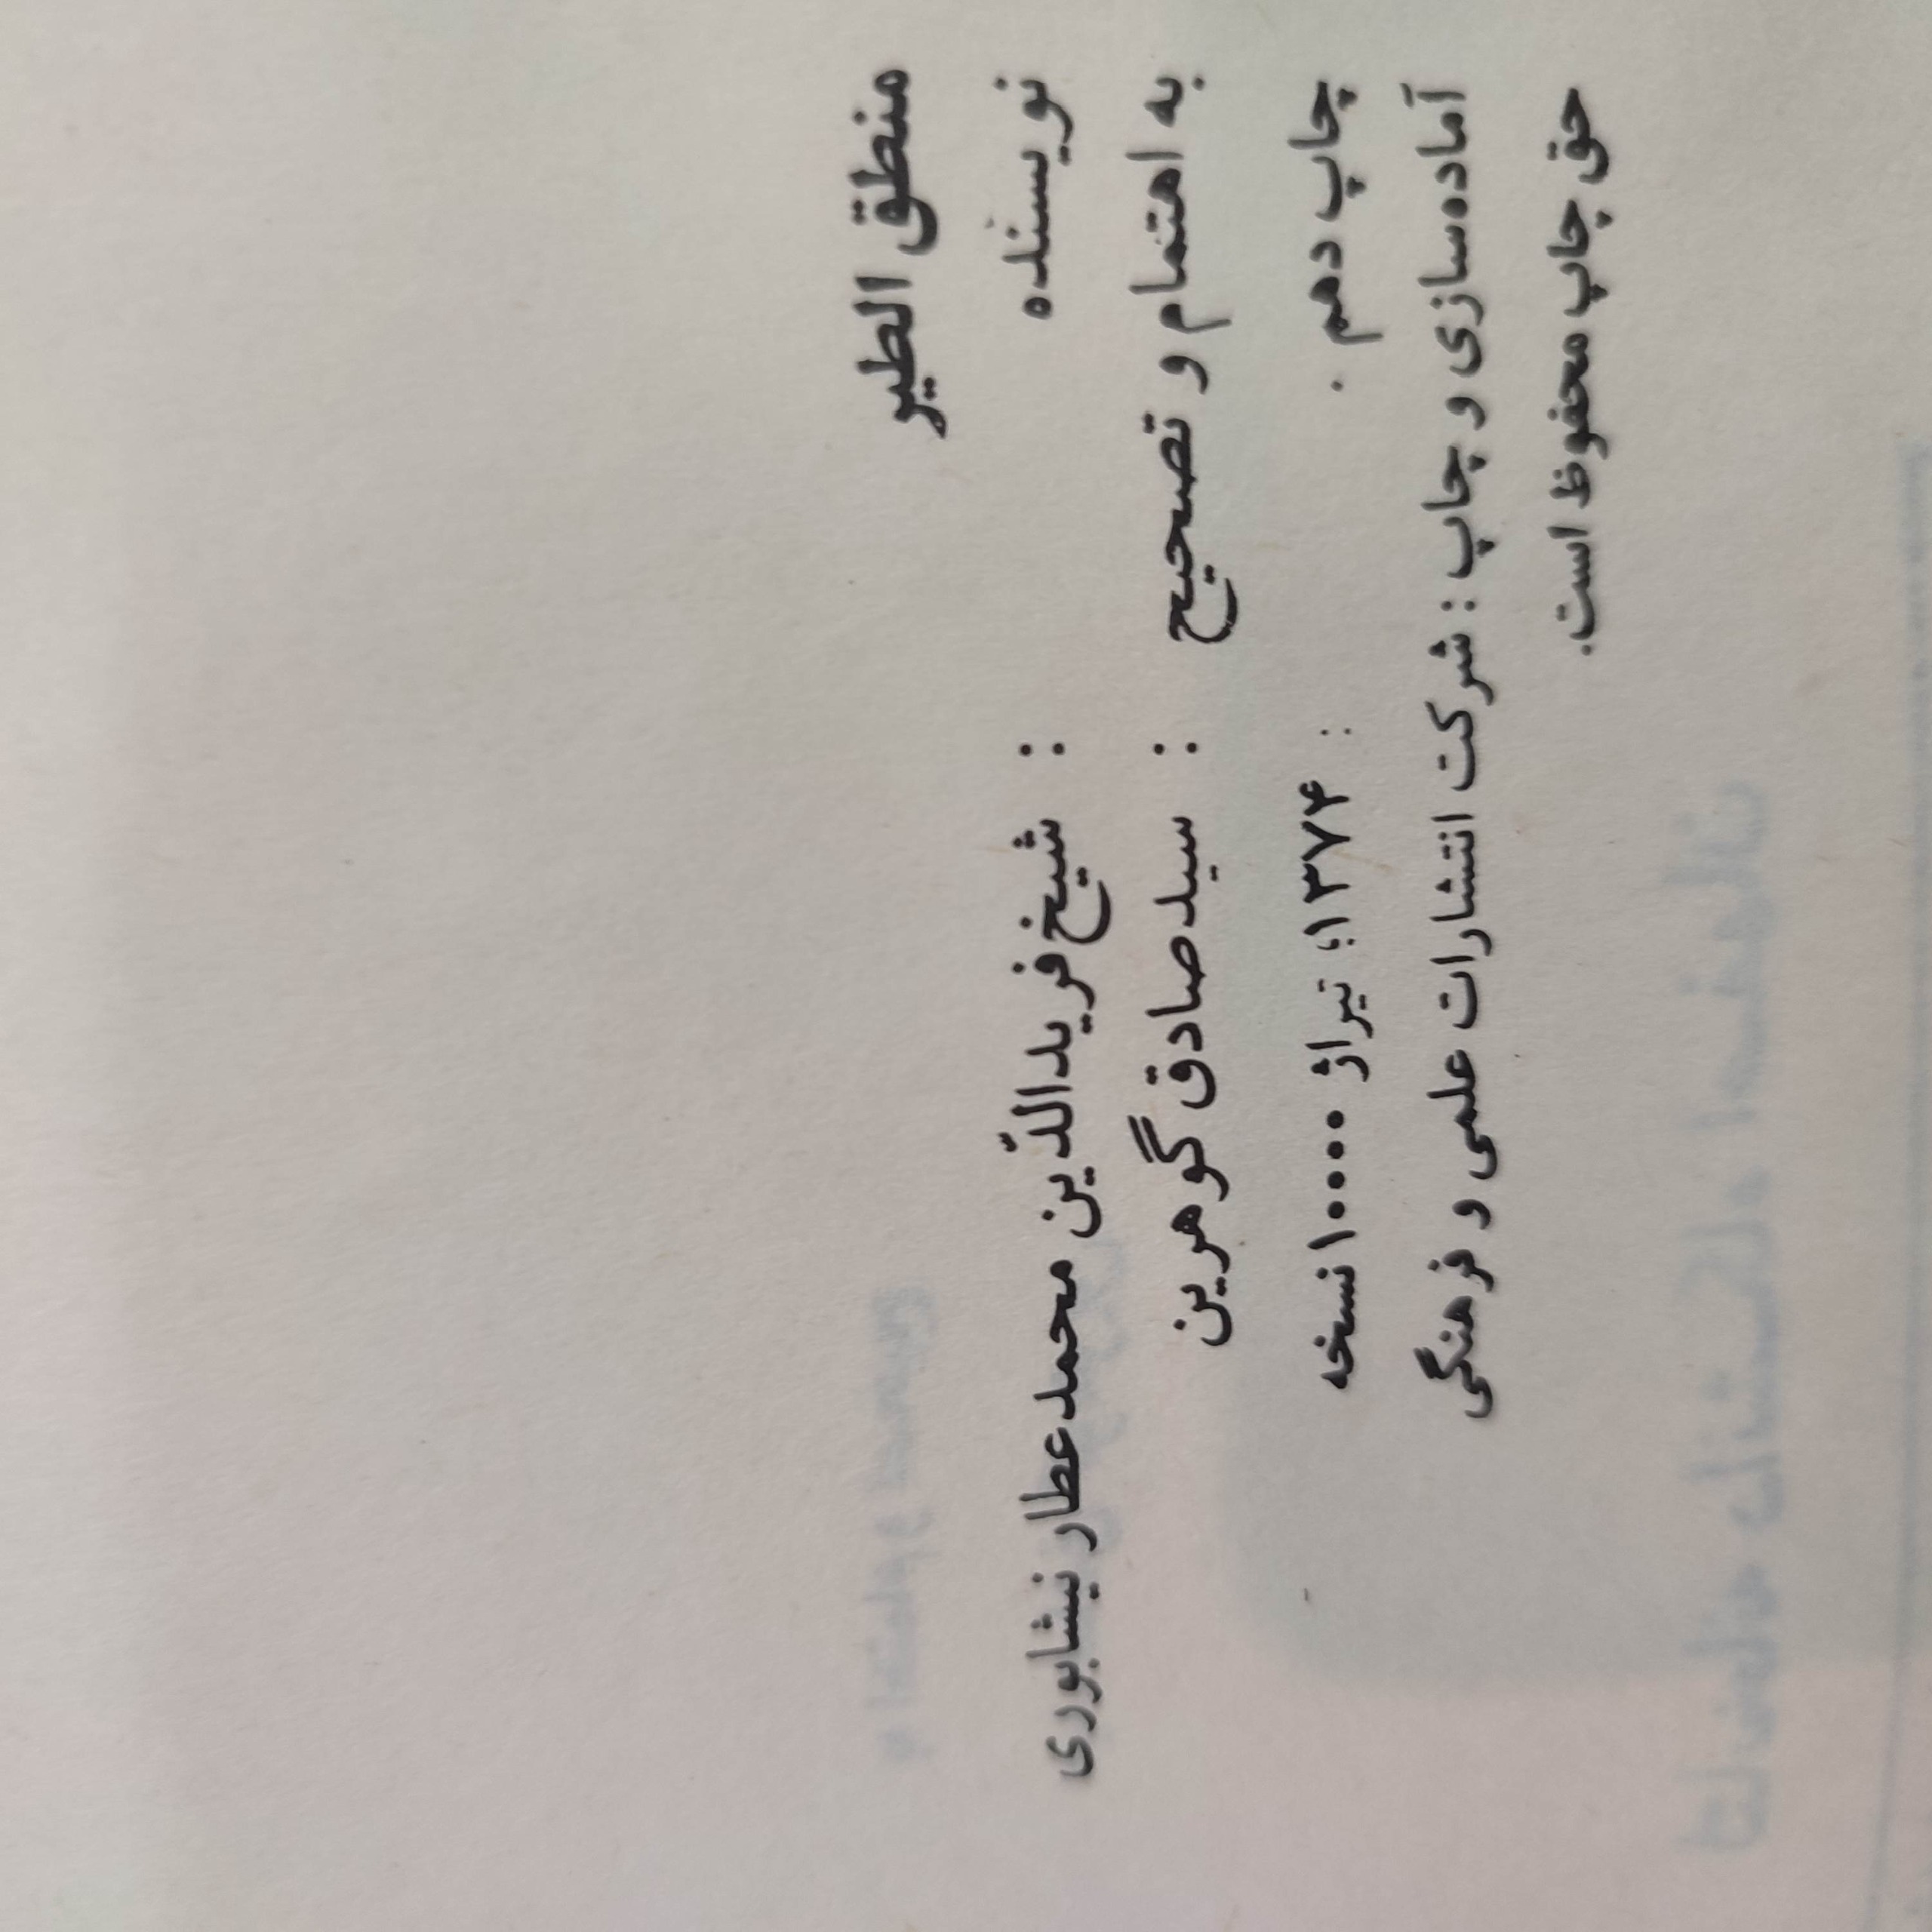 منطق الطیر
نویسنده : شیخ فریدالدّین محمد عطار نیشابوری
به اهتمام و تصحیح : سید صادق گوهرین
چاپ دهم : ۱۳۷۴؛ تیراژ ۱۰۰۰۰ نسخه
آماده‌سازی و چاپ : شرکت انتشارات علمی و فرهنگی
حق چاپ محفوظ است.